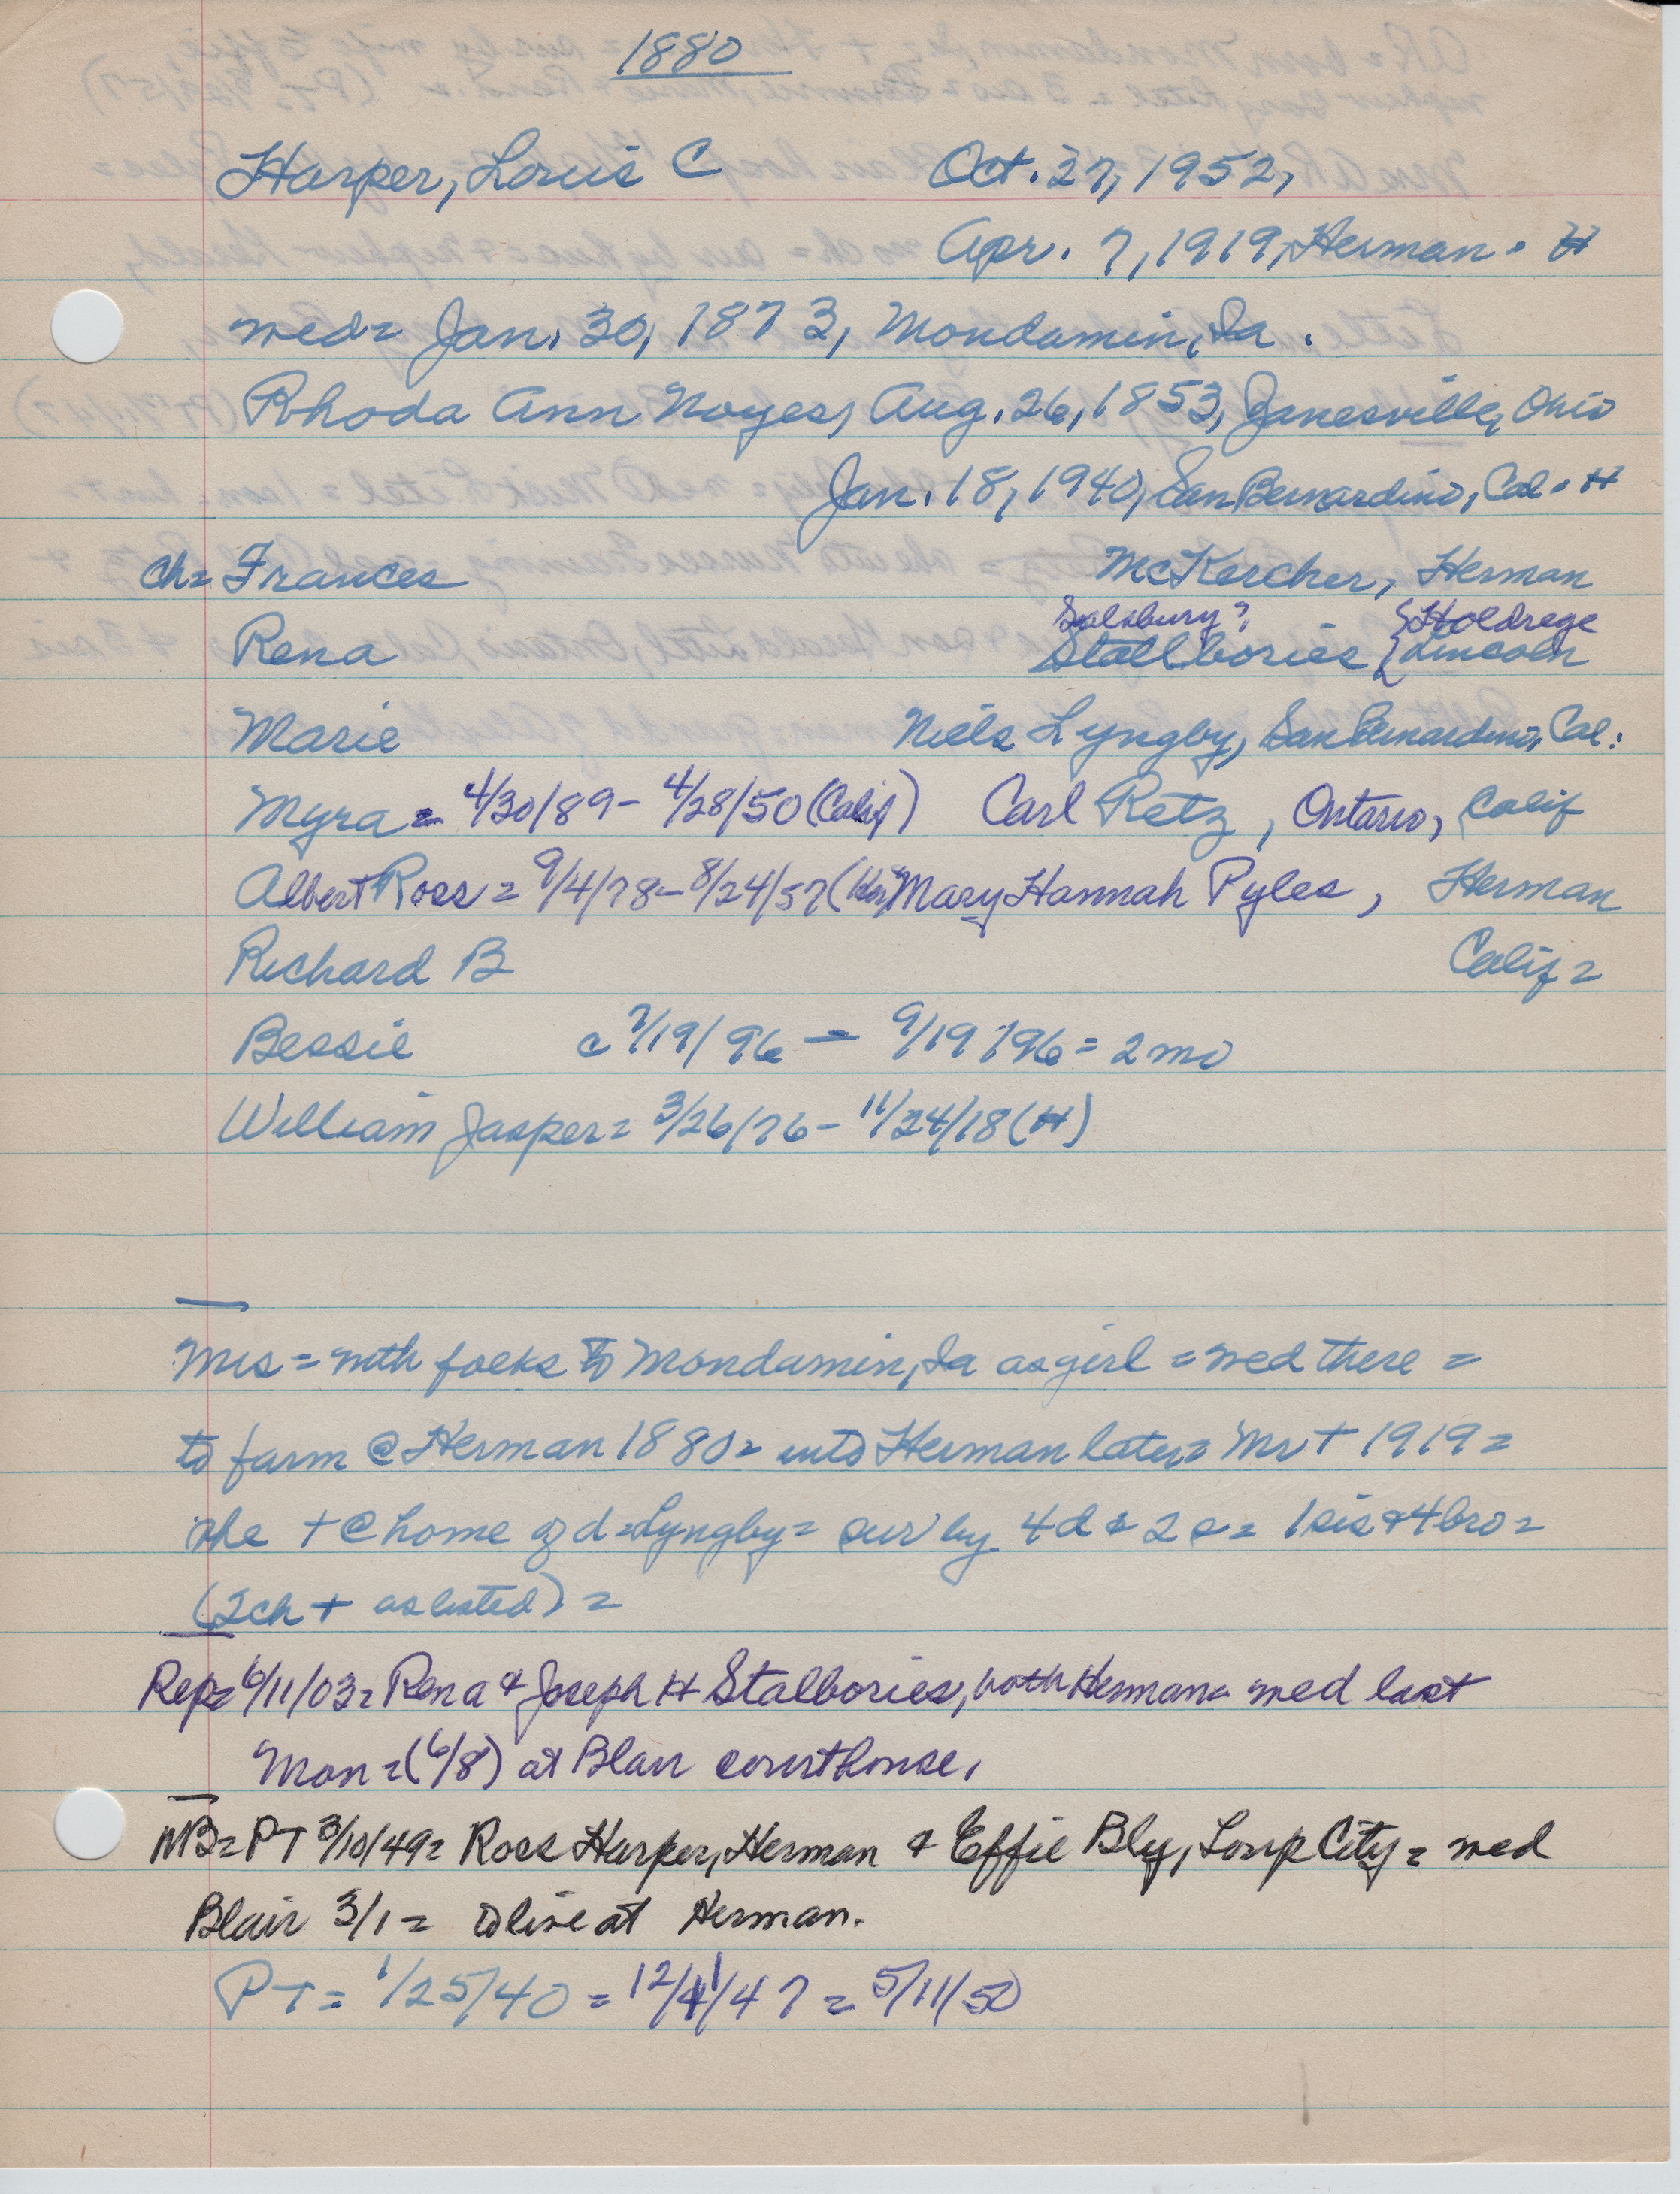 1880
Harper, Louis C Oct. 27, 1952,
Apr. 7, 1919, Herman = H
wed= Jan. 30, 1873, Mondamin, Ia.
Rhoda Ann Noyes, Aug. 26, 1853, Janesville, Ohio
Jan. 18, 1940, San Bernardino, Cal = H
ch= Frances McKercher, Herman
Salsbury?, {Holdrege
Rena Stallbories {Lincoln
Marie Niels Lyngby, San Bernardino, Cal.
Myra = 4/30/89 - 4/28/50 (Calif) Carl Retz, Ontario, Calif
Albert Ross = 9/4/78 - 8/24/57 (Her) Mary Hannah Pyles, Herman
Richard B Calif =
Bessie c 7/19/96 - 9/19/96 = 2 mo
William Jasper = 3/26/76 - 11/24/18 (H)
Mrs = with folks to Mondamin, Ia as girl = wed there =
to farm @ Herman 1880 = into Herman later = Mr + 1919 =
she + @ home of d = Lyngby = sur by 4d & 2s = 1 sis & 4 bro =
(2ch + as listed) =
Rep= 6/11/03= Rena & Joseph H Stalbories, both Herman = wed last
Mon = (6/8) at Blair courthouse.
NB= PT 3/10/49= Ross Harper, Herman & Effie Bly, Loup City = wed
Blair 3/1 = to live at Herman.
PT = 1/25/40 = 12/11/47 = 5/11/50